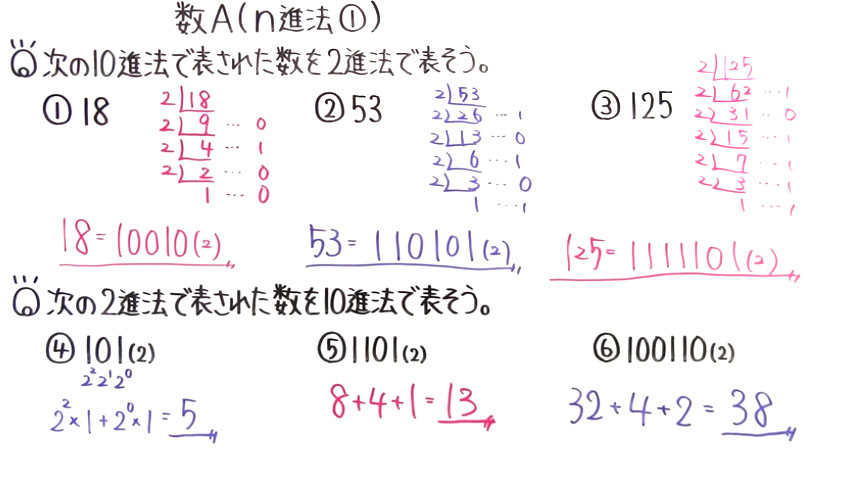 数A(n進法①)
次の10進法で表された数を2進法で表そう。
① 18
2 18
2 9 … 0
2 4 … 1
2 2 … 0
1 … 0
18=10010(2)
② 53
2 53
2 26 … 1
2 13 … 0
2 6 … 1
2 3 … 0
1 … 1
53=110101(2)
③ 125
2 125
2 62 … 1
2 31 … 0
2 15 … 1
2 7 … 1
2 3 … 1
1 … 1
125=1111101(2)
次の2進法で表された数を10進法で表そう。
④ 101(2)
2² 2¹ 2⁰
2²×1+2⁰×1=5
⑤ 1101(2)
8+4+1=13
⑥ 100110(2)
32+4+2=38